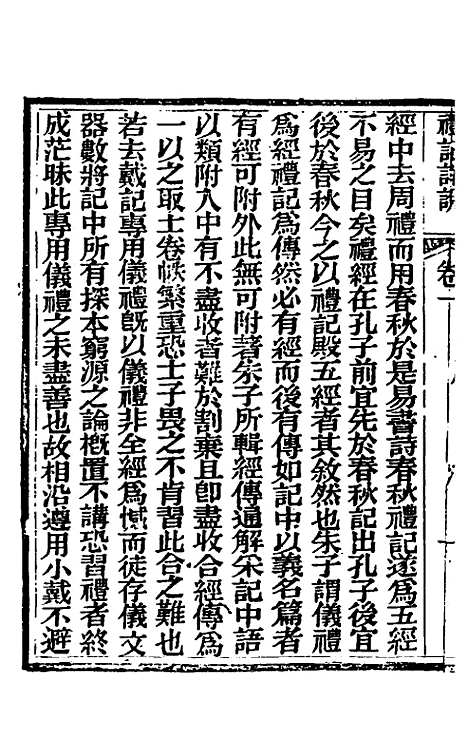 經中去周禮而用春秋於是易書詩春秋禮記遂爲五經
不易之目矣禮經在孔子前宜先於春秋記出孔子後宜
後於春秋今之以禮記殿五經者其敘然也朱子謂儀禮
爲經禮記爲傳然必有經而後有傳如記中以義名篇者
有經可附外此無可附著朱子所輯經傳通解采記中語
以類附入中有不盡收者難於割棄且卽盡收合經傳爲
一以之取士卷帙繁重恐士子畏之不肯習此合之難也
若去戴記專用儀禮旣以儀禮非全經爲憾而徒存儀文
器數將記中所有探本窮源之論槪置不講恐習禮者終
成茫昧此專用儀禮之未盡善也故相沿遵用小戴不避
卷一